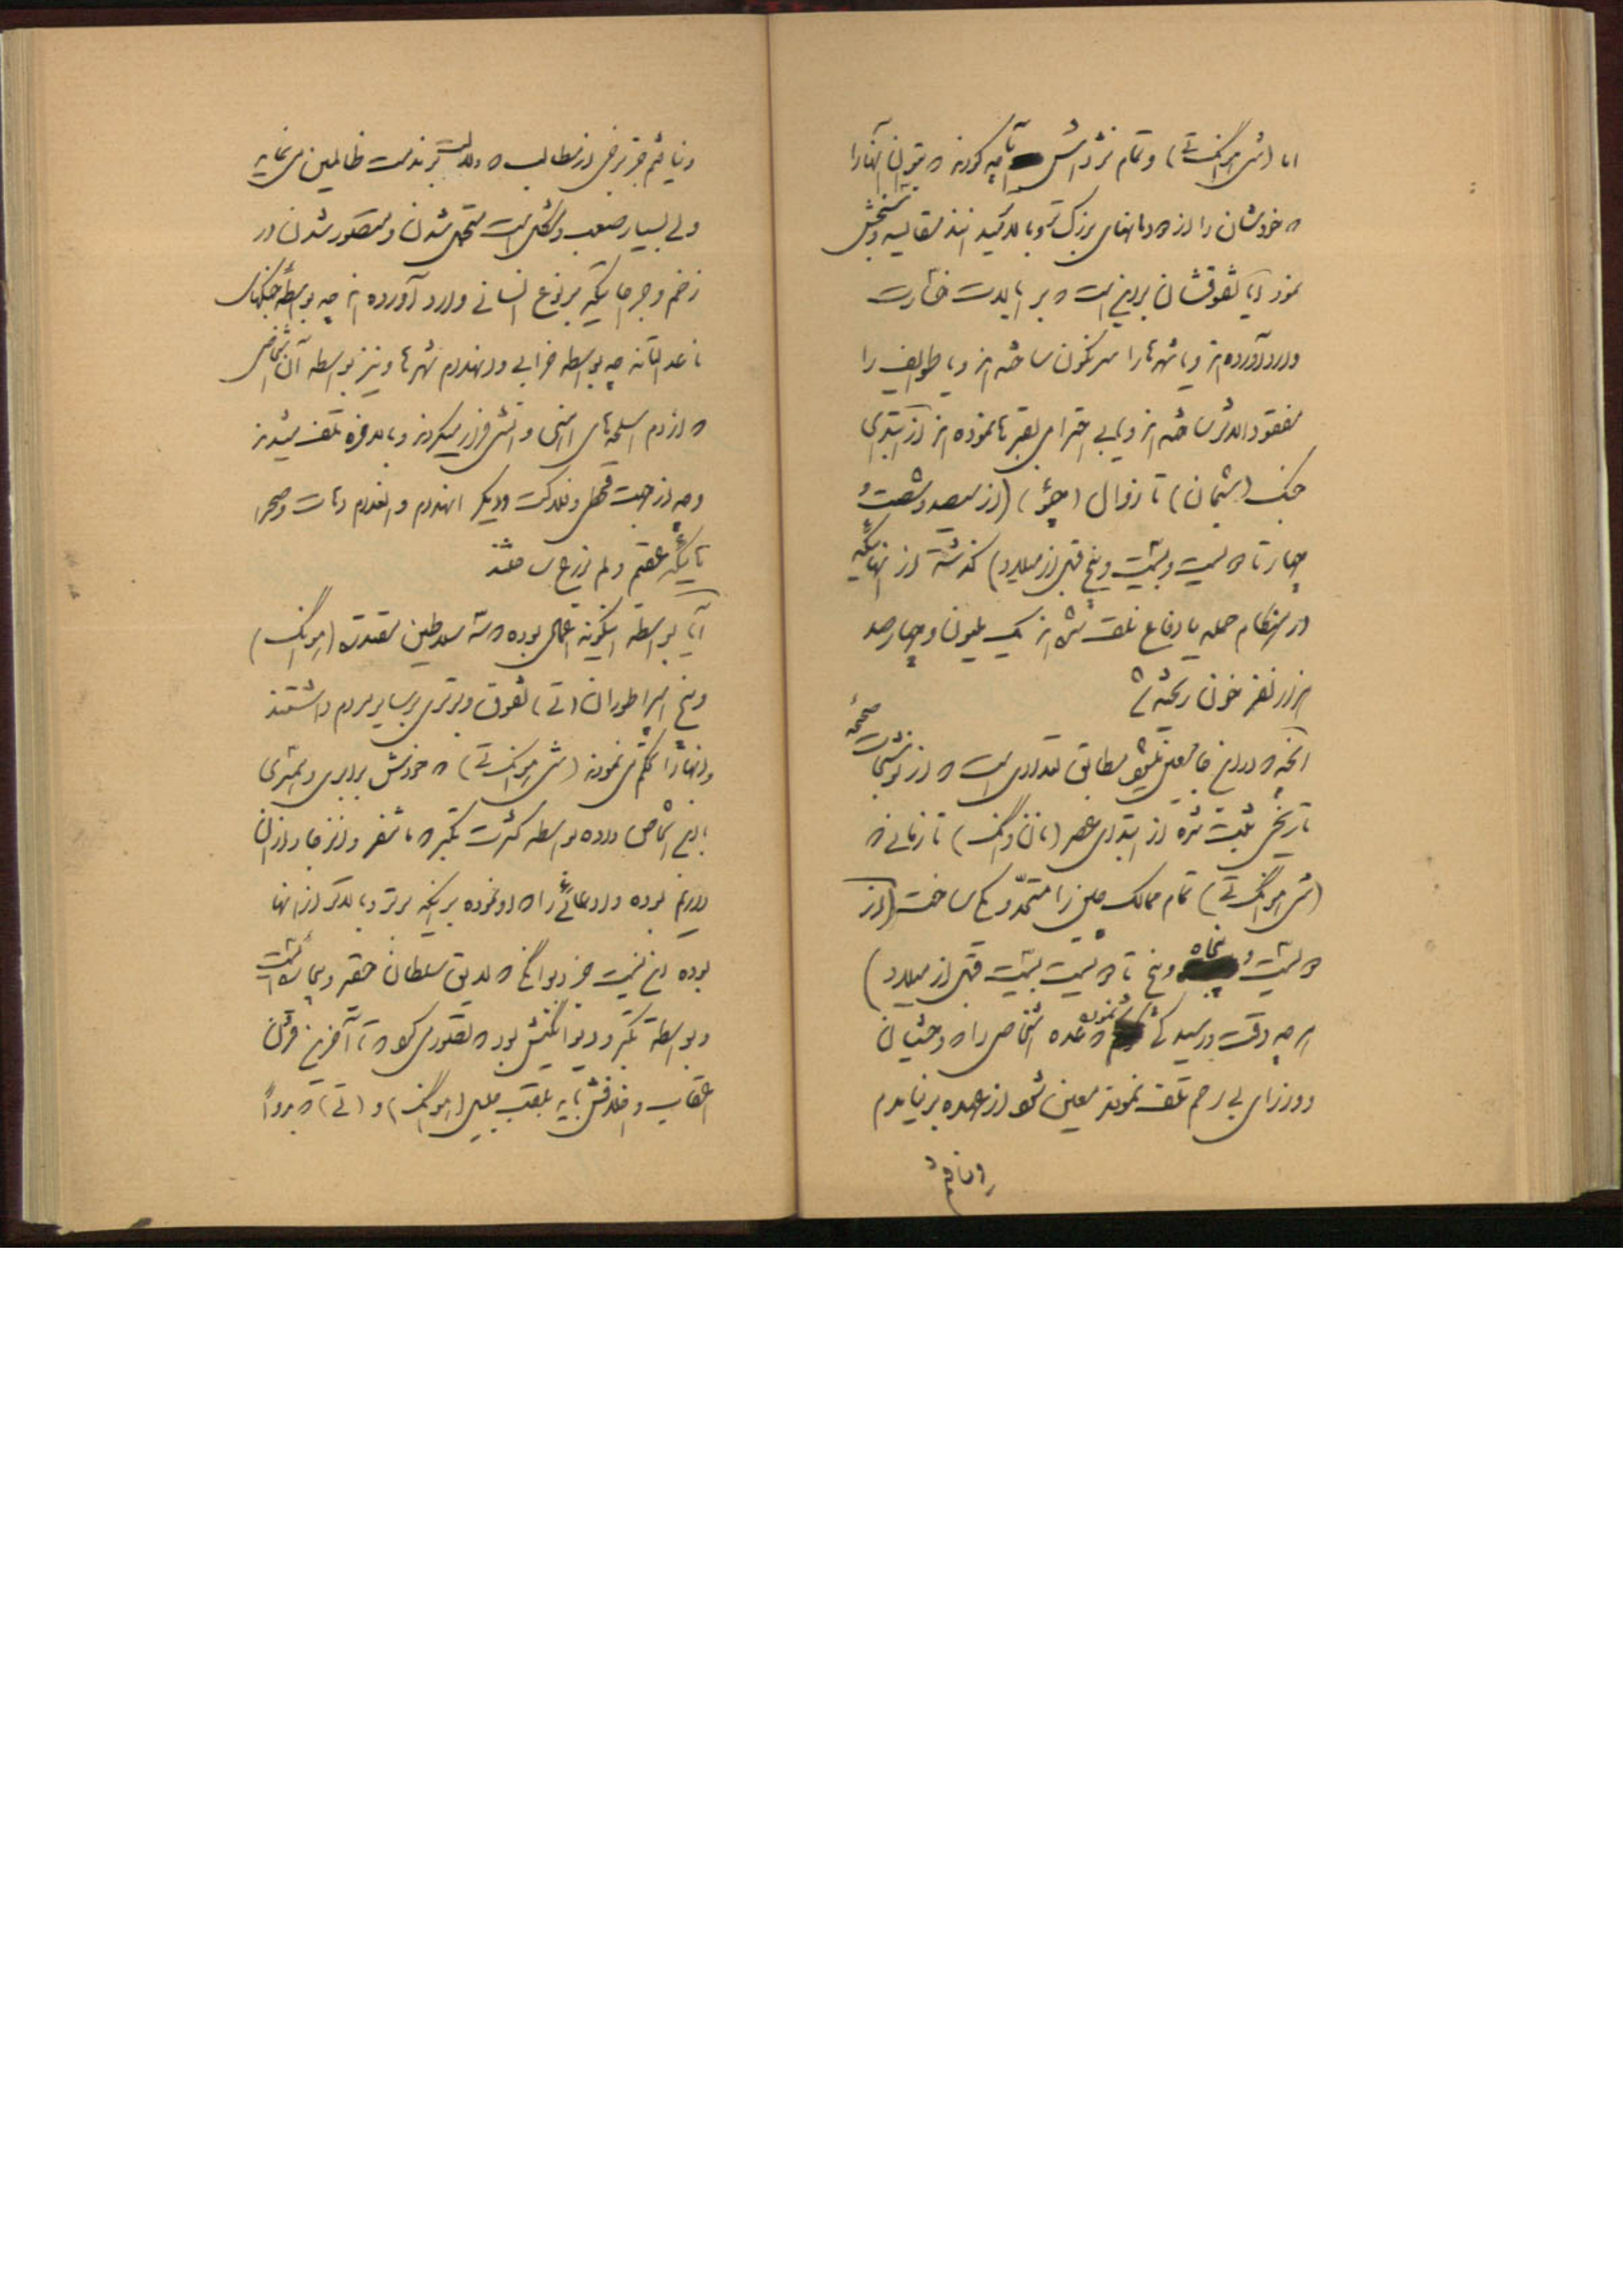 اما (شی امونگ تی) و تمام نژادش تا چه کردند که بتوان آنها را
که خودشان را از دهانهای بزرگ تر و بالاتر میدانند مقایسه و سنجش
نمود آیا تفوقشان بر این است که بر ایالات خسارت
وارد آورده‌اند و یا شهرها را سرنگون ساخته‌اند و یا طوایف را
مفقودالاثر ساخته‌اند و یا بی احترامی بقبرها نموده‌اند از ابتدای
جنگ (شیمان) تا زوال (چو) (از سیصد و شصت و
چهار تا دویست و بیست و پنج قبل از میلاد) گذشته از انهائیکه
در هنگام حمله یا دفاع تلف شده‌اند یک ملیون و چهار صد
هزار نفر خون ریخته شد
آنچه که در اینجا معین میشود مطابق تعدادی است که از نوشتجات صحیحه
تاریخی ثبت شده از ابتدای عصر (نان وانگ) تا زمانی که
(شی امونگ تی) تمام ممالک چین را متحد و یکی ساخت (از
دویست و پنجاه و پنج تا دویست بیست قبل از میلاد)
هر چه دقت و رسیدگی شود که عده اشخاصی را که وحشیان
و وزرای بی رحم تلف نمودند معین شود از عهده بر نیامدم
و نیافتم جز برخی از مطالب که دلالت بر مذمت ظالمین می نماید
ولی بسیار صعب و مشکل است متحمل شدن و متصور شدن در
زخم و جرحهائیکه بر نوع انسانی وارد آورده‌اند چه بواسطه جنگهای
ناعدالتانه چه بواسطه خرابی و انهدام شهرها و نیز بواسطه آن اشخاصی
که از دم اسلحه‌های اهنی و اتشی فرار میکردند و بالاخره تلف میشدند
و چه از جهت قحطی و هلاکت و دیگر انهدام و انعدام دهات و صحرا
تا یکجا عقیم و لم یزرع ساختند
آیا بواسطه اینگونه اعمال بوده که سه سلاطین مقتدره (امونگ)
و پنج امپراطوران (تی) تفوق و برتری بر سایر مردم داشتند
و انها را حکم می نمودند (شی امونگ تی) که خودش برابری و همسری
باین اشخاص داده بواسطه کثرت تکبر که ما تنفر و انزجار از ان
داریم بوده و ادعائی را که او نموده بر اینکه برتر و بالاتر از انها
بوده این نیست جز دیوانگی که لایق سلطان حقیر و بیچاره است
و بواسطه تکبر و دیوانگیش بود که تصور می کرد که تا آخرین قرن
اعقاب و اخلافش باید بلقب جلیل (امونگ) و (تی) که بر او